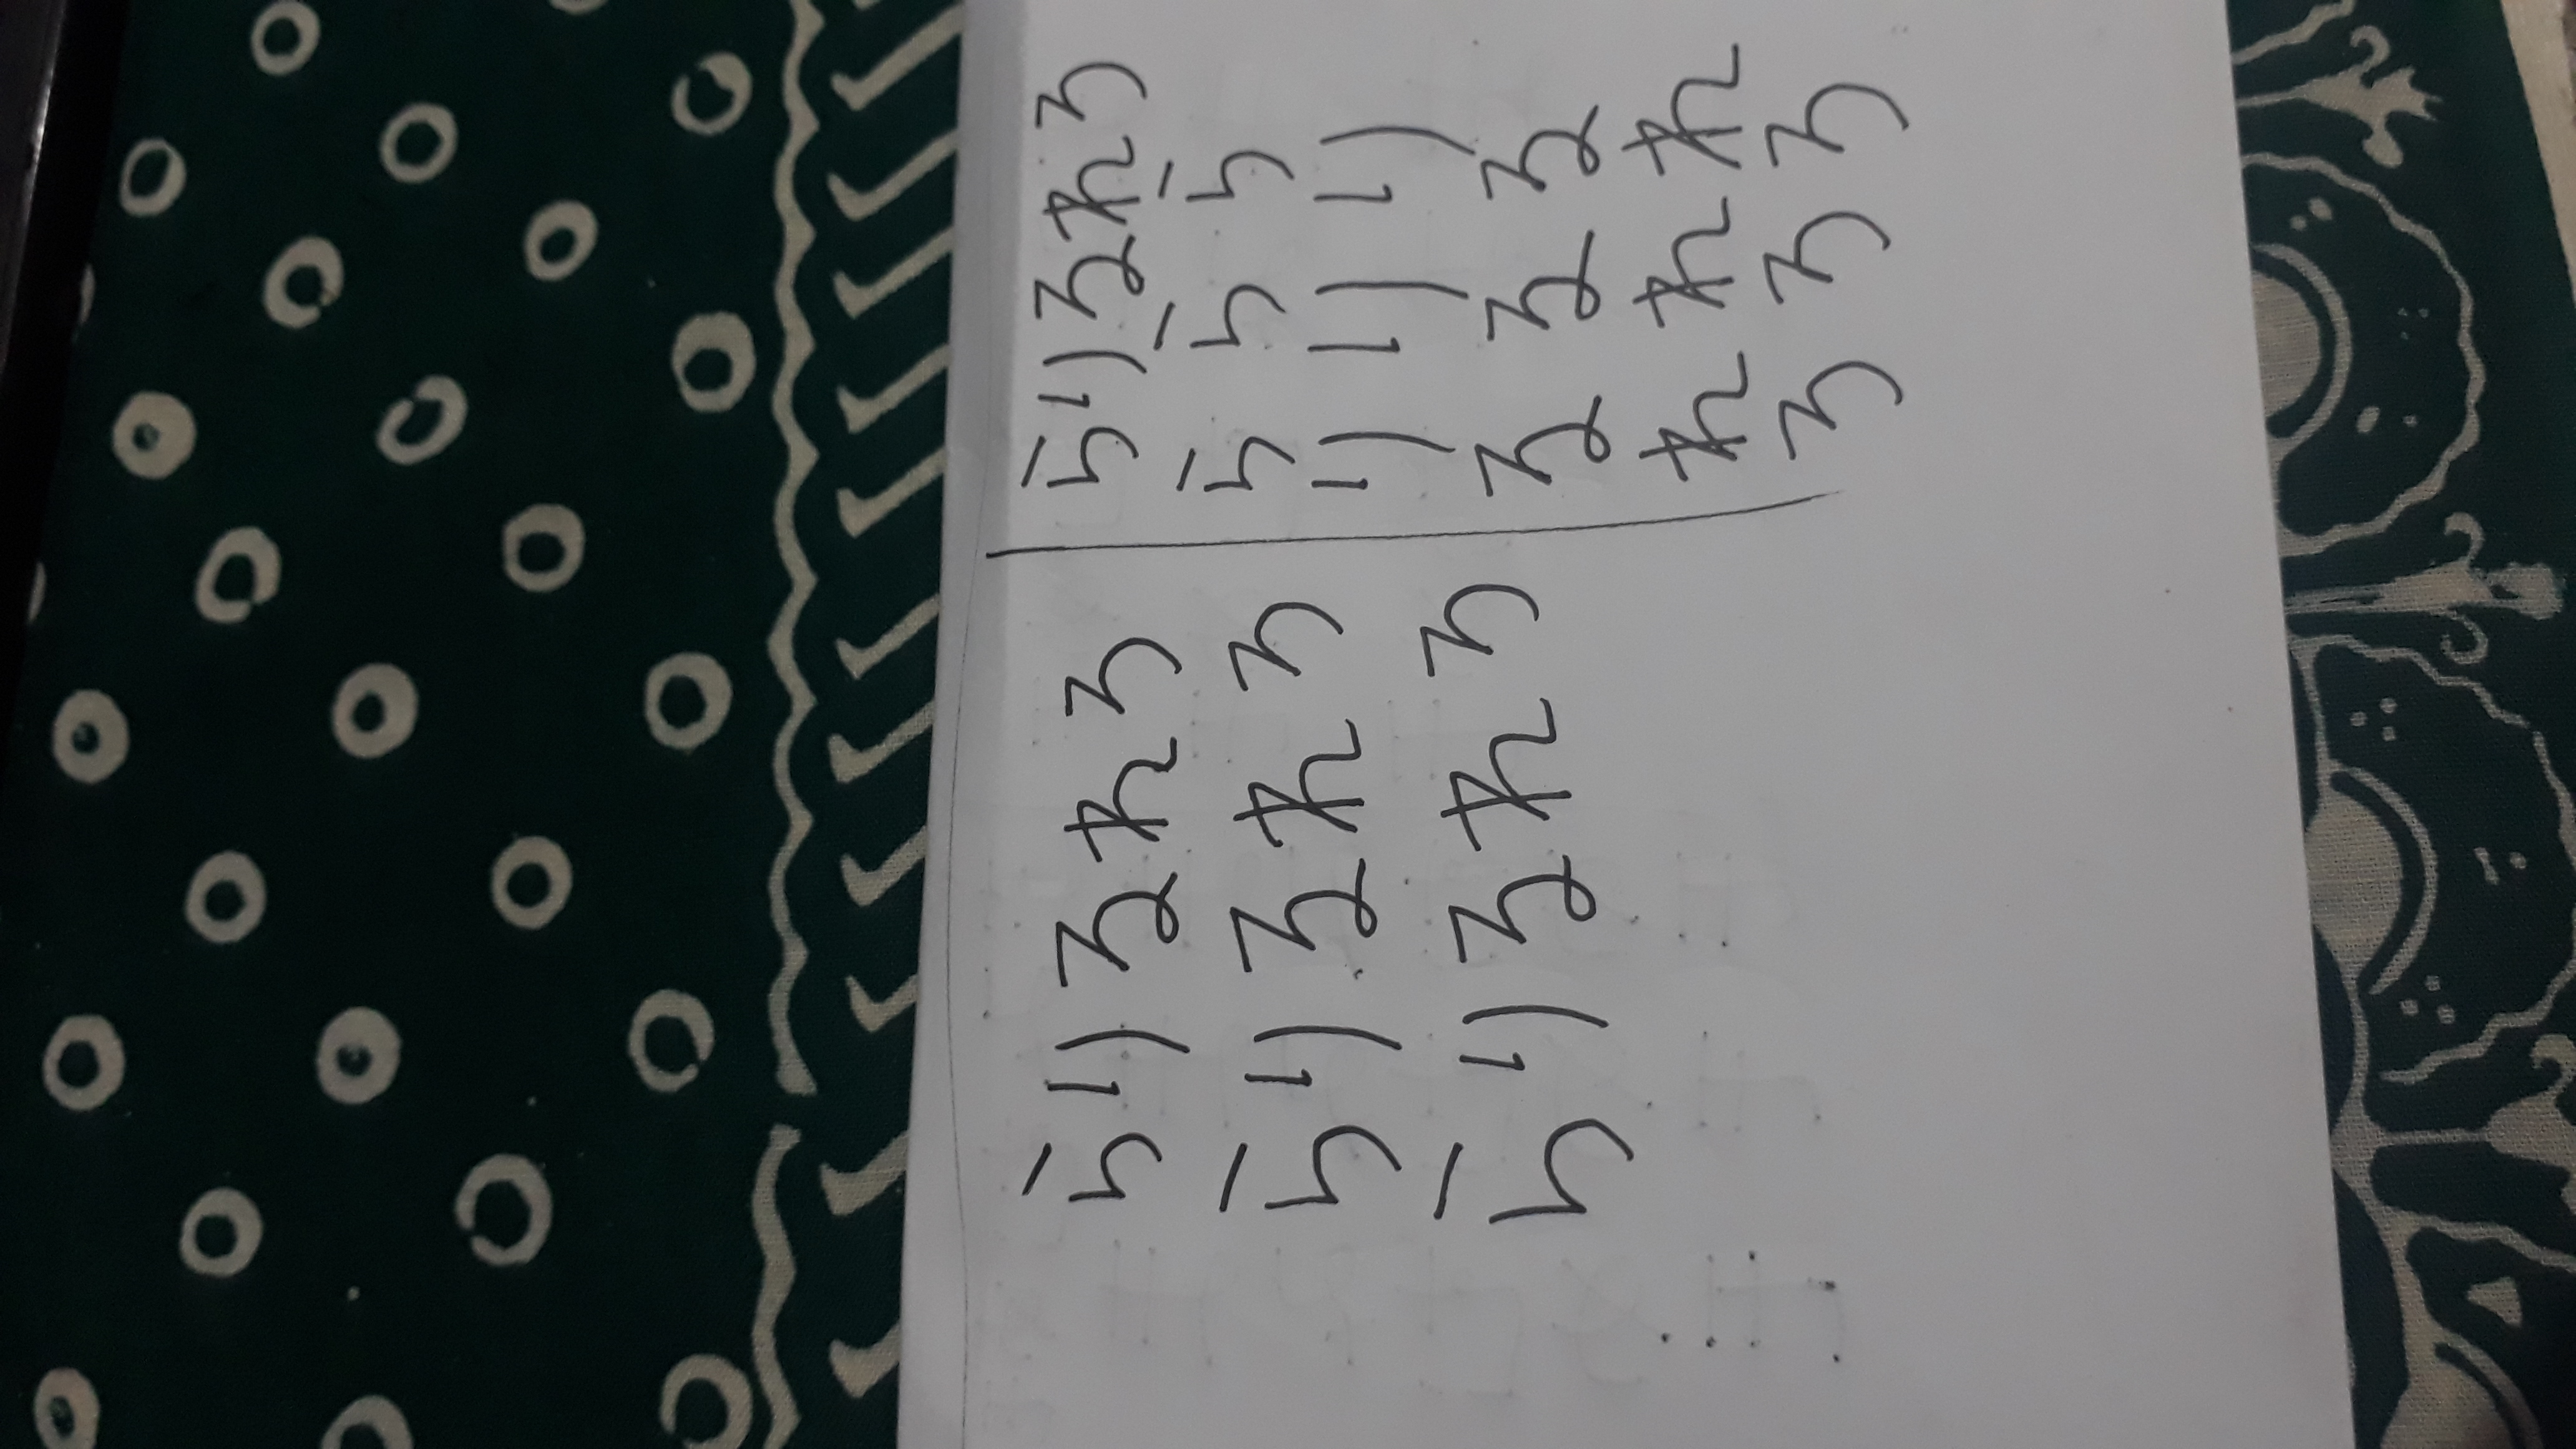 らりるれろ
らりるれろ
らりるれろ
らりるれろ
ららら
りりり
るるる
れれれ
ろろろ